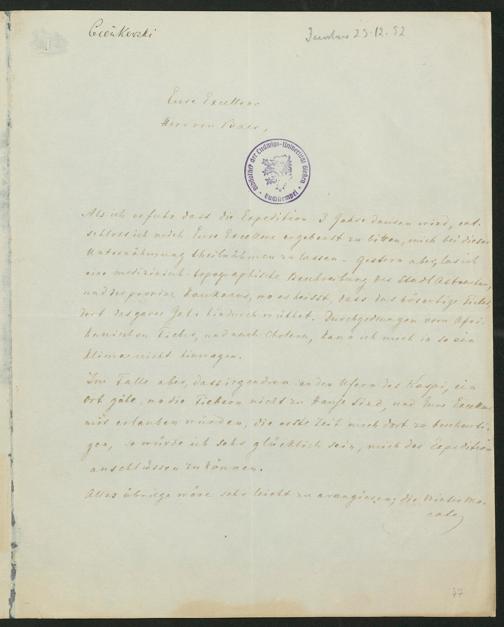 Cieńkowski
23.12.52
Eure Excellenz
Herr von Baer,
Bibliothek der Ludwigs-Universität Giessen
Als ich erfuhr dass die Expedition 3 Jahre dauern wird, ent-
schloss ich mich Eure Excellenz ergebenst zu bitten, mich bei dieser
Unternehmung theilnehmen zu lassen - gestern aber las ich
eine medizinisch-topographische Beschreibung der Stadt Astrachan,
und der provinz Kaukasus, wo es heisst, dass das bösartige Fieber
dort das ganze Jahr hindurch wüthet. Durchgedrungen vom Afri-
kanischen Fieber, und auch Cholera, kann ich mich in so ein
Klima nicht hinwagen.
Im Falle aber, dass irgendwo an den Ufern des Kaspi, ein
Ort gäbe, wo die Fieber nicht zu Hause sind, und Eure Excellenz
mir erlauben würden, die erste Zeit mich dort zu beschäfti-
gen, so würde ich sehr glücklich sein, mich der Expedition
anschliessen zu können.
Alles übrige wäre sehr leicht zu arangieren; die
77